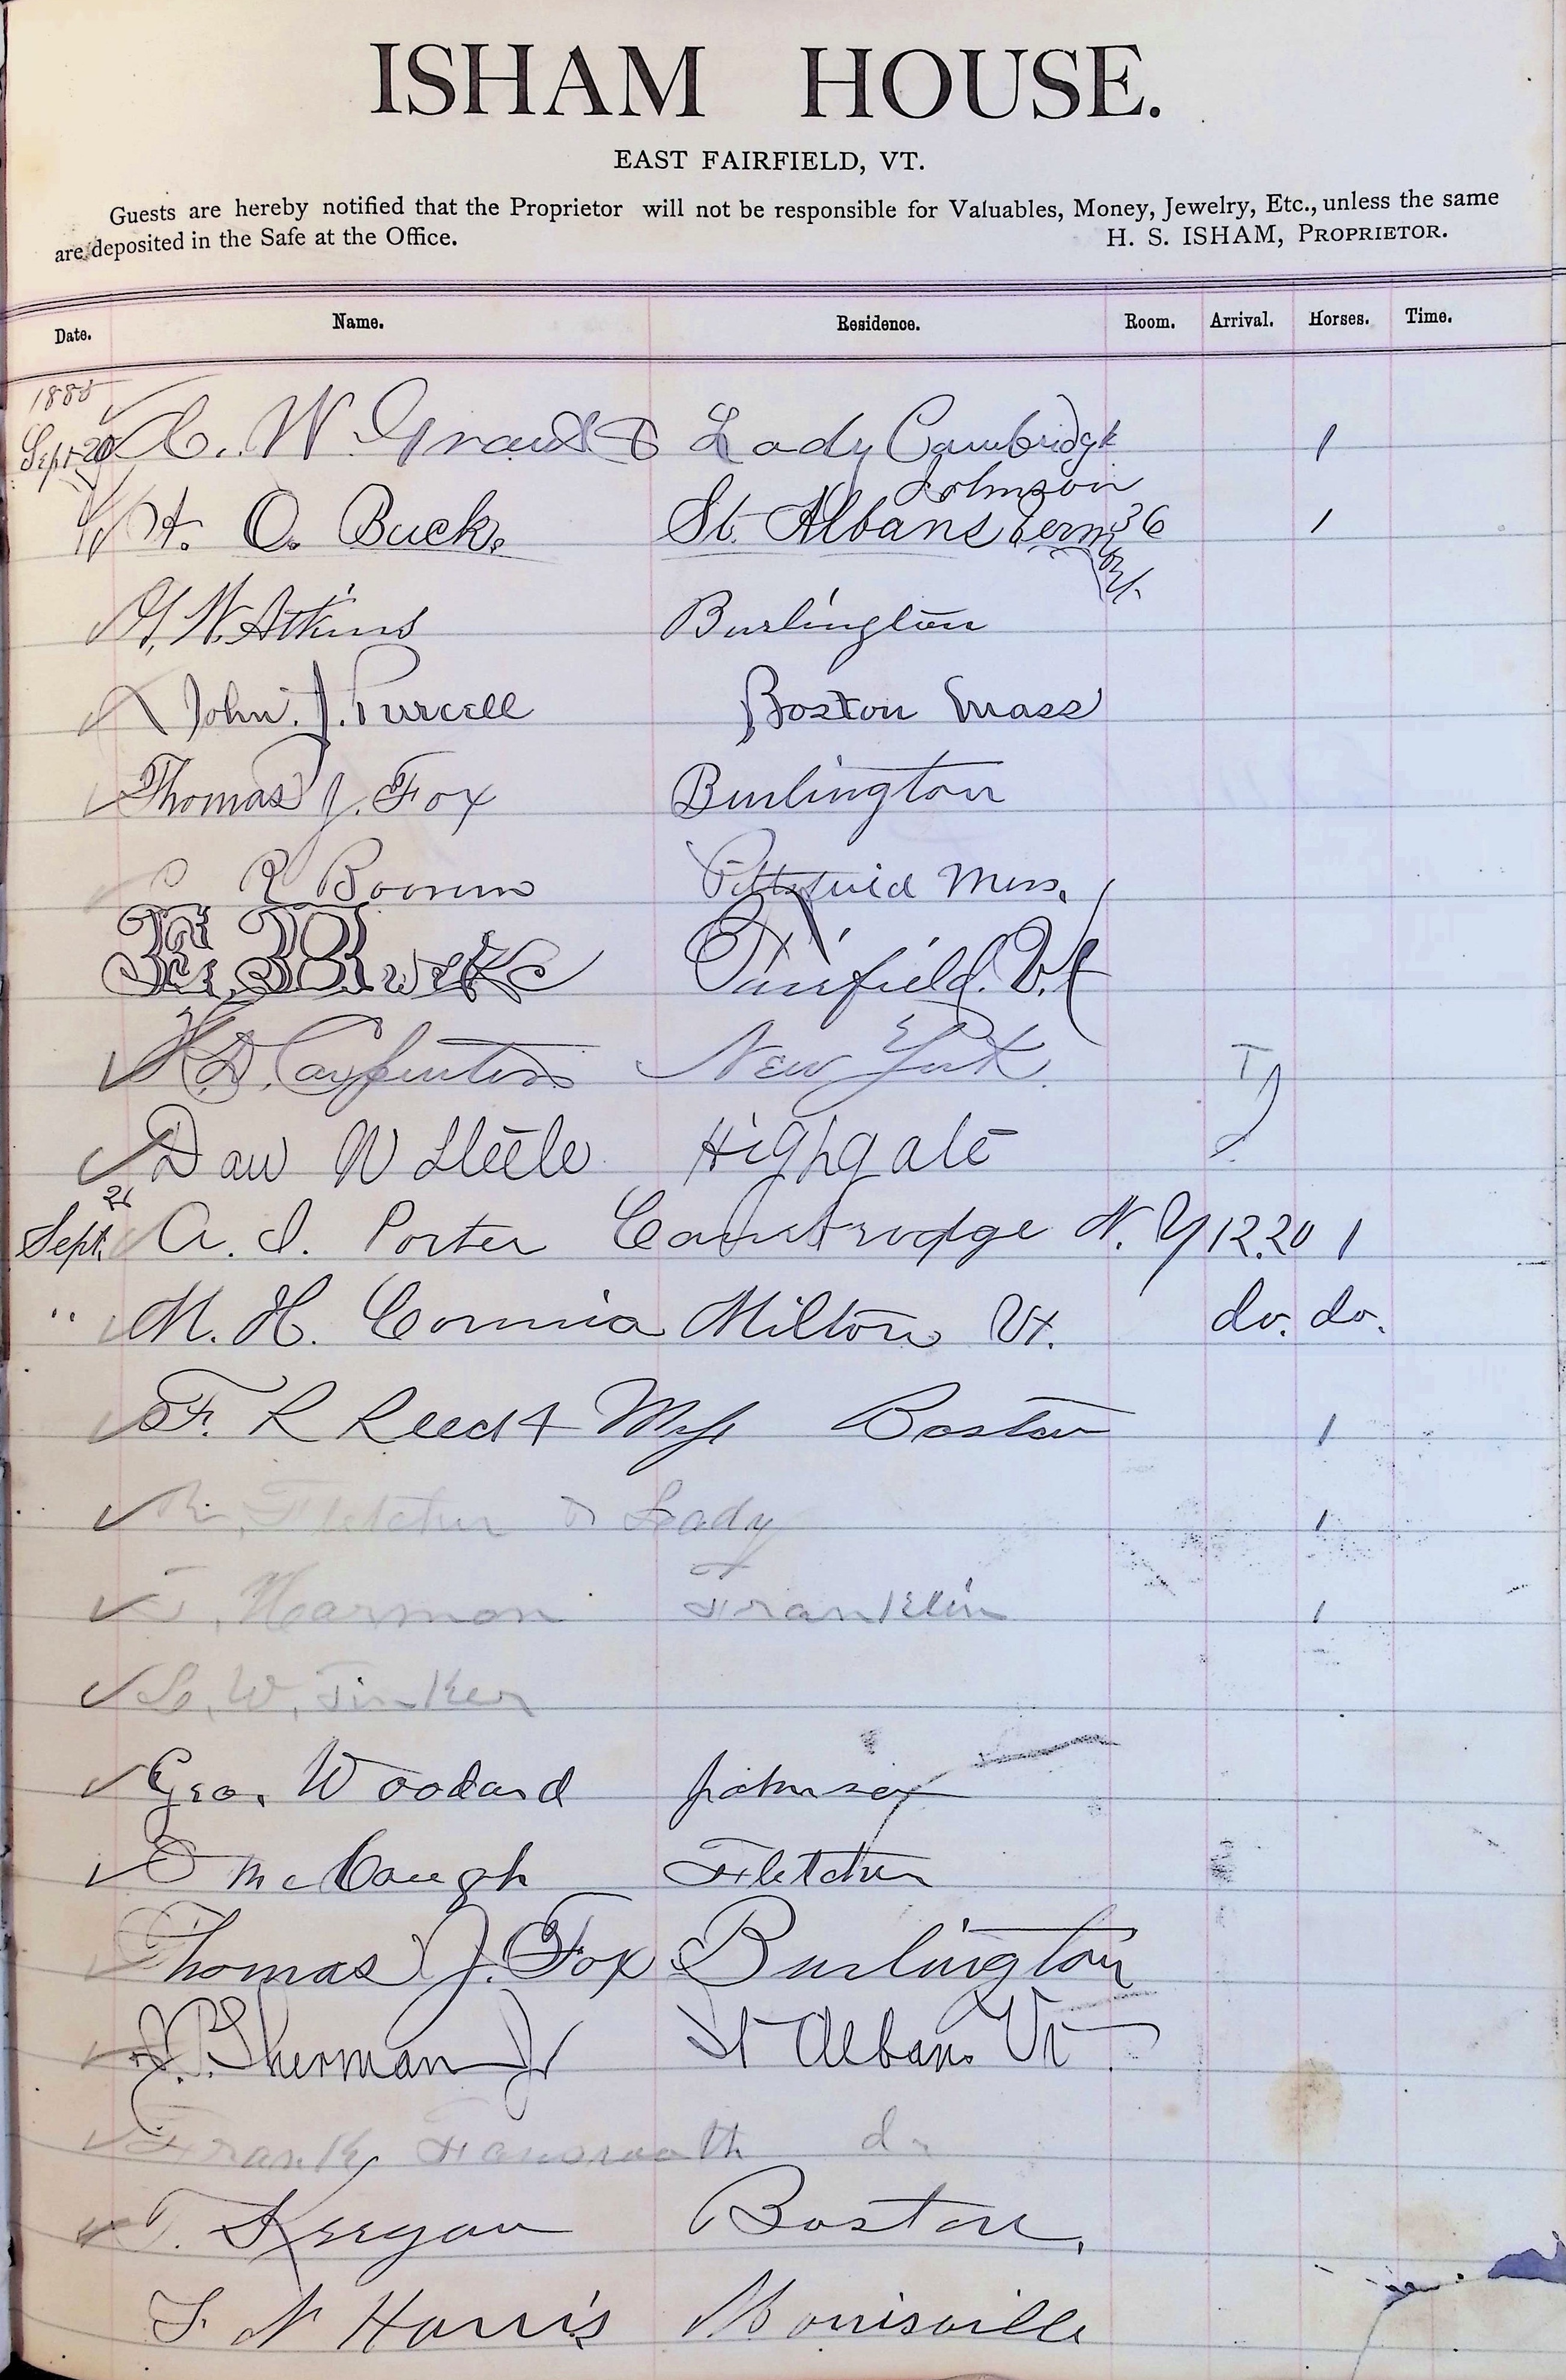 ISHAM HOUSE.
EAST FAIRFIELD, VT.
Guests are hereby notified that the Proprietor will not be responsible for Valuables, Money, Jewelry, Etc., unless the same
are deposited in the Safe at the Office. H. S. ISHAM, PROPRIETOR.
Date. Name. Residence. Room. Arrival. Horses. Time.
1885
Sept 20 C. W. & Lady Cambridge 1
Johnson
H. O. Buck. St. Albans Vermont. 36 1
W. Atkins Burlington
John. J. Purcell Boston Mass
Thomas J. Fox Burlington
C R Mass.
Fairfield. Vt
H. D. Carpenter New York.
Dan W Steele Highgate
Sept. 21 A. I. Porter Cambridge N. Y 12.20 1
" M. H. Commia Milton Vt. do. do.
F. R Reed & Wife Boston 1
Fletcher & Lady 1
Harmon Franklin 1
W. Tinker
Geo. Woodard Johnson
Fletcher
Thomas J. Fox Burlington
J. P. Sherman Jr St Albans Vt
Frank do
T. Keegan Boston.
N Harris Morrisville